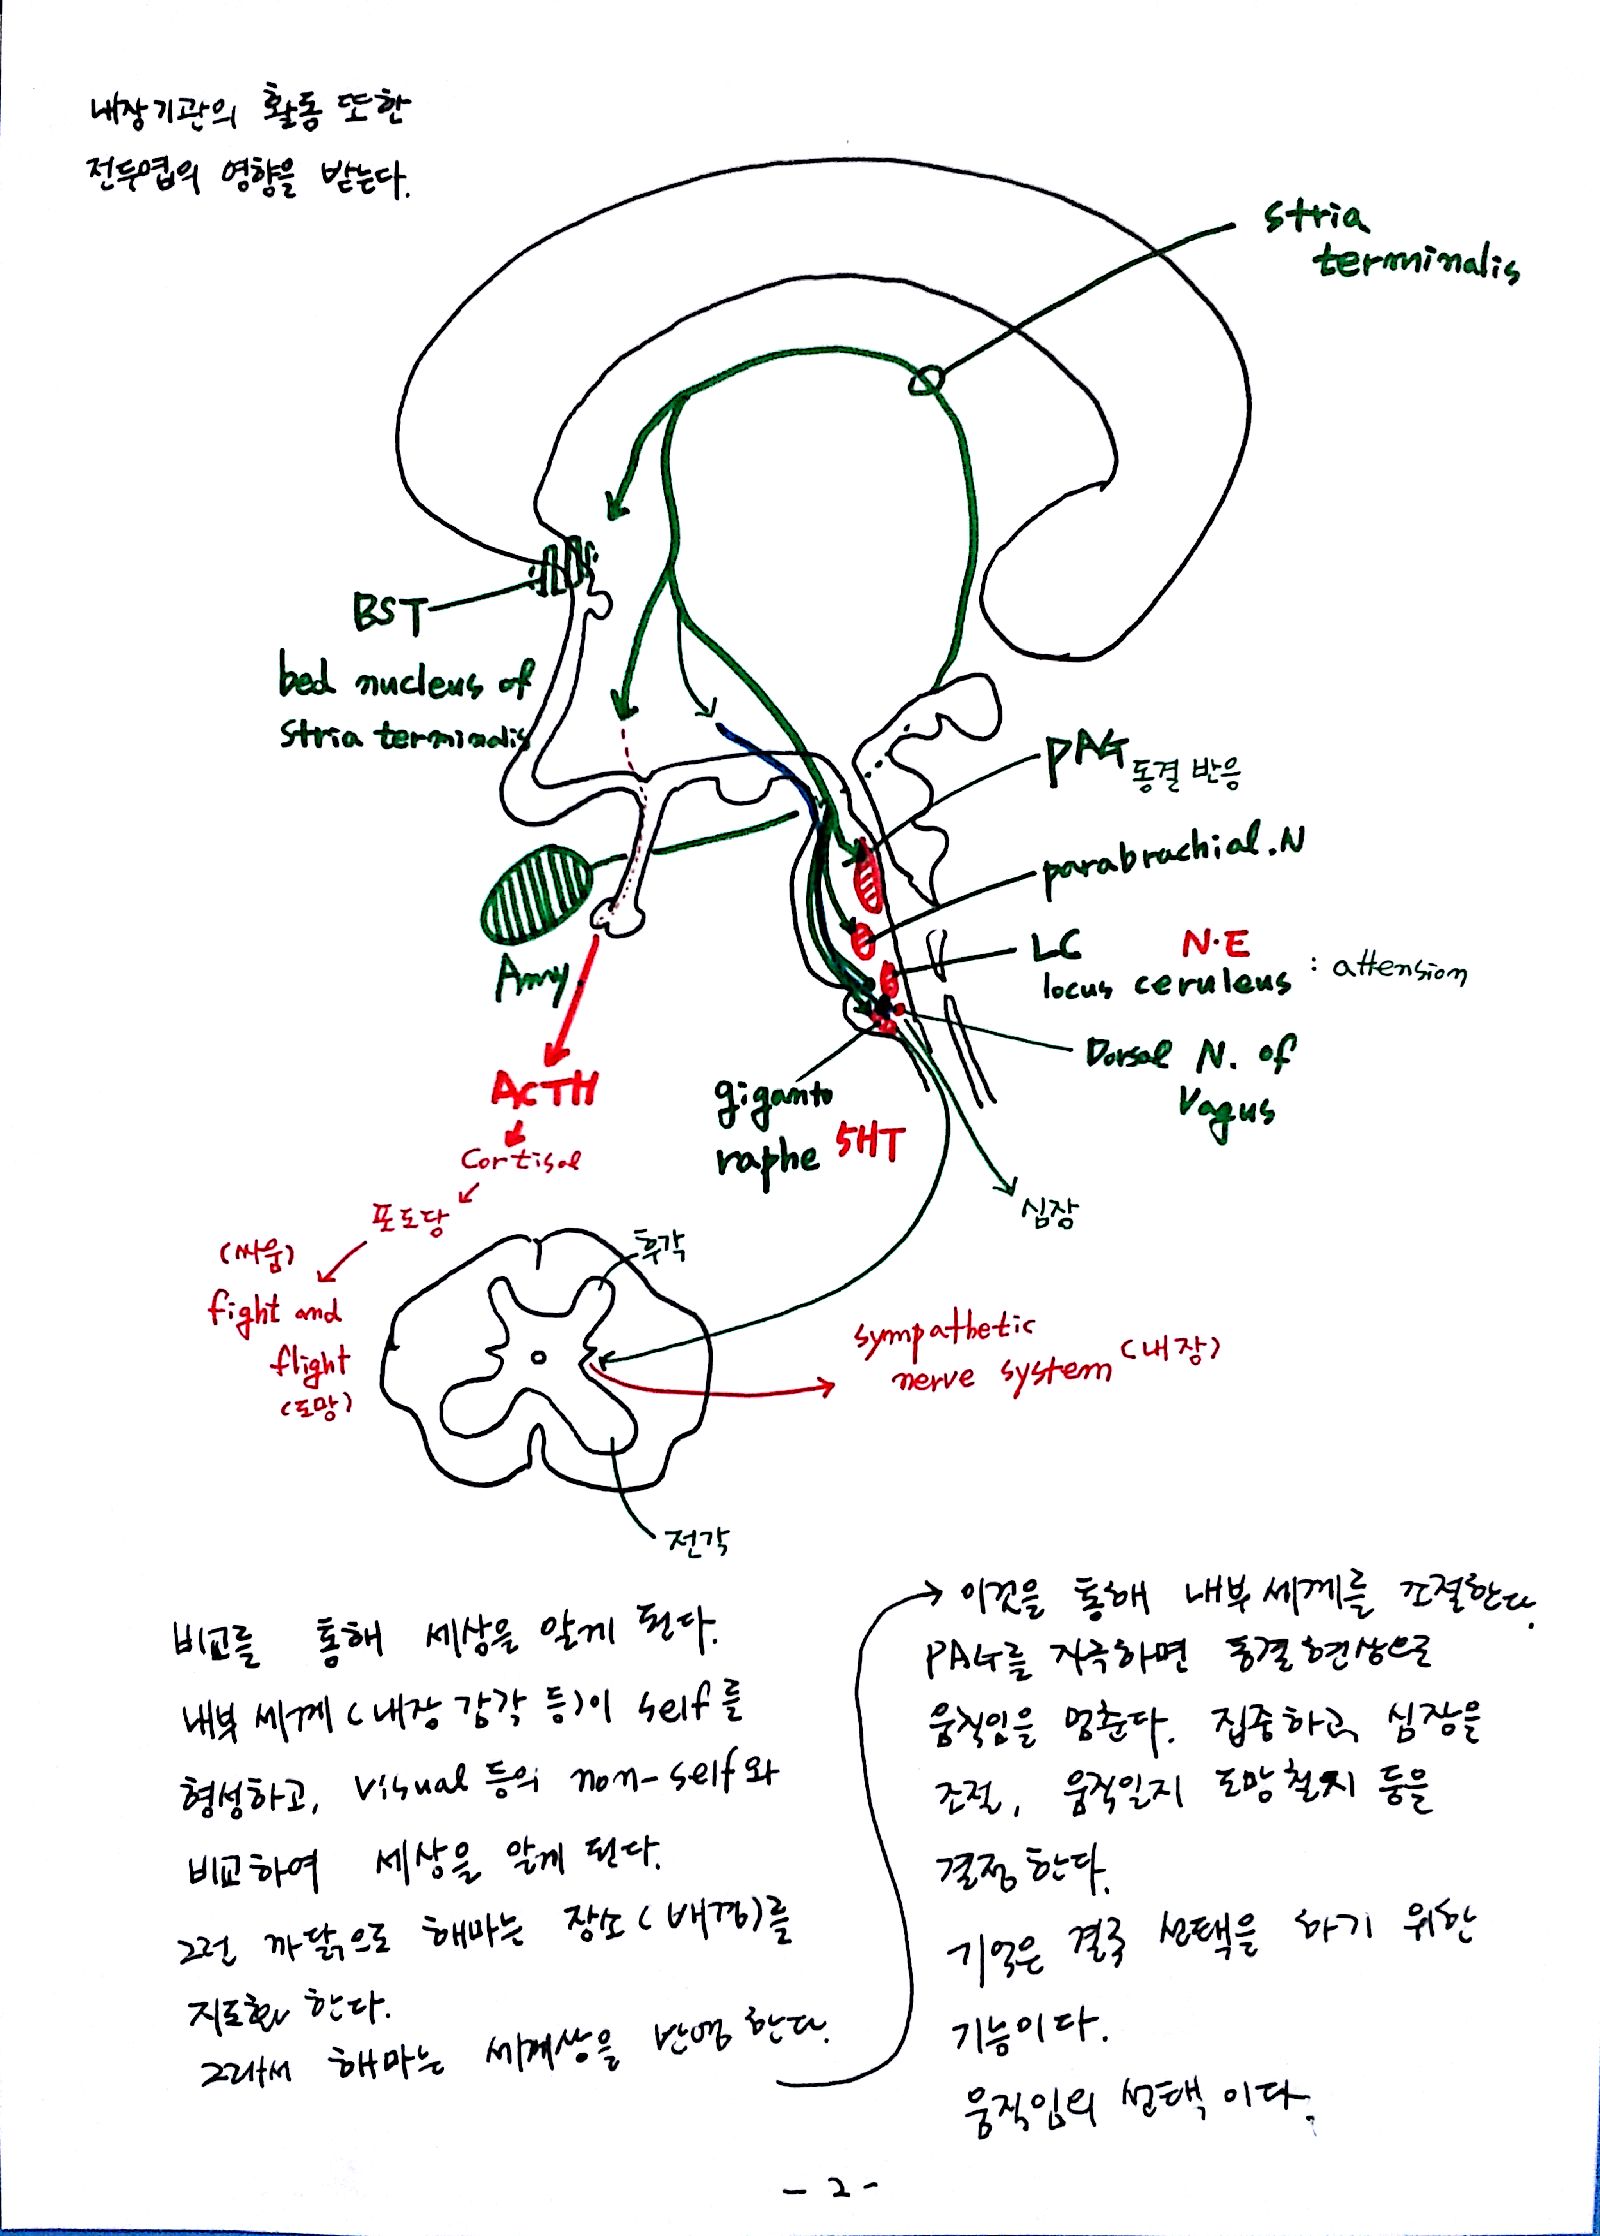 내장기관의 활동 또한
전두엽의 영향을 받는다.
stria
terminalis
BST
bed nucleus of
stria terminalis
PAG 동결 반응
parabrachial.N
LC N.E
locus ceruleus : attension
Amy.
Dorsal N. of
Vagus
ACTH
giganto
raphe 5HT
cortisol
심장
포도당
(싸움)
fight and
flight
(도망)
후각
sympathetic
nerve system (내장)
전각
비교를 통해 세상을 알게 된다.
내부 세계(내장 감각 등)이 self를
형성하고, visual 등의 non-self와
비교하여 세상을 알게 된다.
그런 까닭으로 해마는 장소(배경)를
지도화 한다.
그래서 해마는 세계상을 반영한다.
이것을 통해 내부 세계를 조절한다.
PAG를 자극하면 동결현상으로
움직임을 멈춘다. 집중하고, 심장을
조절, 움직일지 도망칠지 등을
결정한다.
기억은 결국 선택을 하기 위한
기능이다.
움직임의 선택이다.
- 2 -